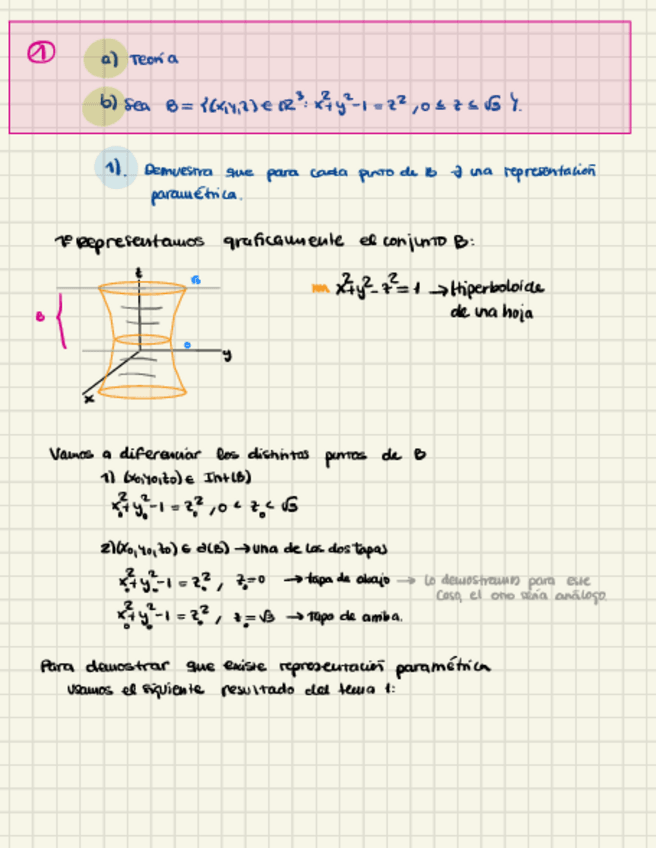 1
a) Teoría
b) Sea B = {(x,y,z) ∈ ℝ³: x²+y²-1 = z², 0 ≤ z ≤ √3}.
1). Demuestra que para cada punto de B ∃ una representación
paramétrica.
1º Representamos graficamente el conjunto B:
z
√3
x²+y²-z²=1 → Hiperboloide
de una hoja
B
0
y
x
Vamos a diferenciar los distintos puntos de B
1) (x₀,y₀,z₀) ∈ Int(B)
x₀²+y₀²-1 = z₀², 0 < z₀ < √3
2) (x₀,y₀,z₀) ∈ ∂(B) → una de las dos tapas
x₀²+y₀²-1 = z₀², z₀=0 → tapa de abajo → Lo demostramos para este
caso, el otro sería análogo.
x₀²+y₀²-1 = z₀², z₀=√3 → tapa de arriba.
Para demostrar que existe representación paramétrica
usamos el siguiente resultado del tema 1: